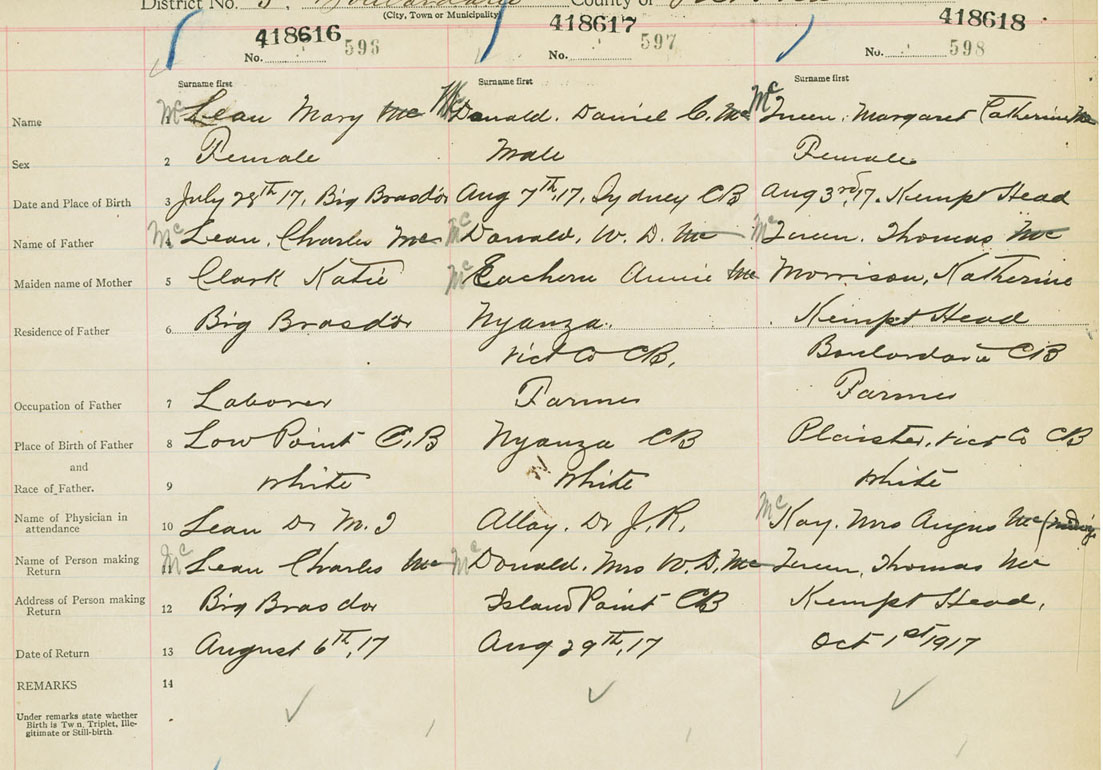 District No. 5, Boulardarie County of
(City, Town or Municipality)
418616 596 418617 597 418618 598
No. No. No.
Surname first Surname first Surname first
Name Mc Lean Mary Mc Mc Donald. Daniel C. Mc Mc Margaret Catherine Mc
Sex 2 Female Male Female
Date and Place of Birth 3 July 28th 17, Big Brasdor Aug 7th, 17, Sydney CB Aug 3rd, 17, Kempt Head
Name of Father 4 Mc Lean, Charles Mc Mc Donald, W. D. Mc Mc Thomas Mc
Maiden name of Mother 5 Clark Katie Mc Eachern Annie Mc Morrison, Katherine
Residence of Father 6 Big Brasdor Nyanza. Kempt Head
Vict Co CB, Boulardarie CB
Occupation of Father 7 Laborer Farmer Farmer
Place of Birth of Father 8 Low Point C.B Nyanza CB Plaister, Vict Co CB
and
Race of Father. 9 White White White
Name of Physician in attendance 10 Lean Dr M. J Dr J. R. Mc Kay. Mrs Angus Mc
Name of Person making Return 11 Mc Lean Charles Mc Mc Donald. Mrs W. D. Mc Thomas Mc
Address of Person making Return 12 Big Brasdor Island Point CB Kempt Head,
Date of Return 13 August 6th, 17 Aug 29th, 17 Oct 1st 1917
REMARKS 14
Under remarks state whether
Birth is Twn, Triplet, Ille-
gitimate or Still-birth